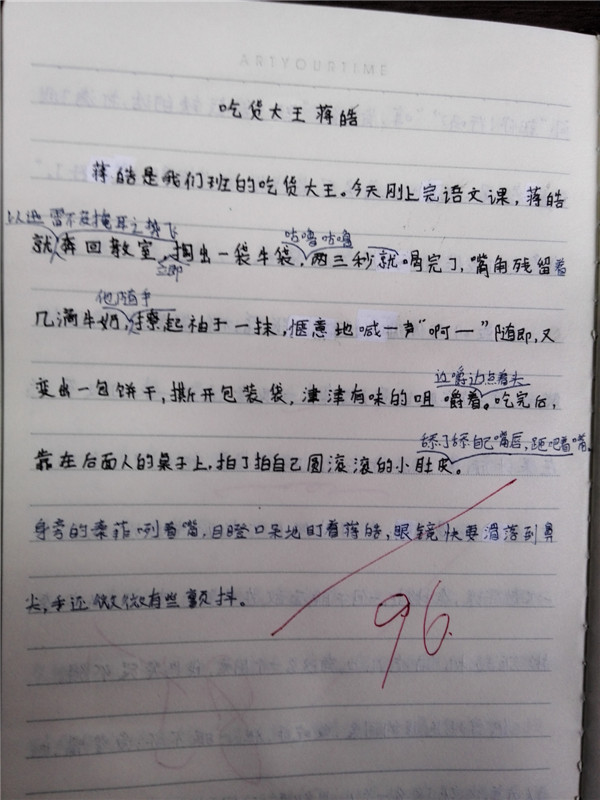 ARTYOURTIME
吃货大王蒋皓
蒋皓是我们班的吃货大王。今天刚上完语文课，蒋皓
以迅雷不及掩耳之势飞
就奔回教室，掏出一袋牛袋，两三秒就喝完了，嘴角残留着
立即
咕噜咕噜
他随手
几滴牛奶，撩起袖子一抹，惬意地喊一声“啊一”随即，又
变出一包饼干，撕开包装袋，津津有味的咀嚼着。吃完后，
边嚼边点着头
舔了舔自己嘴唇，吧着嘴。
靠在后面人的桌子上，拍了拍自己圆滚滚的小肚皮。
身旁的秦菲咧着嘴，目瞪口呆地盯着蒋皓，眼镜快要滑落到鼻
尖，手还微微有些颤抖。
96.